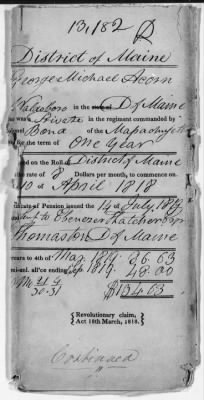 13,182
District of Maine
George Michael Acorn
Waldoboro in the D of Maine
who was a Private in the regiment commanded by
Bond of the Massachusetts
for the term of One Year
on the Roll of District of Maine
the rate of 8 Dollars per month, to commence on
April 1818
ficate of Pension issued the 14 of July 1819
sent to Ebenezer Thatcher Esqr
Thomaston D of Maine
rears to 4th of Mar. 1819. 86.63
mi-anl. all'ce ending Sep 1819. 48.00
$134.63
{Revolutionary claim,
Act 18th March, 1818.}
Continued